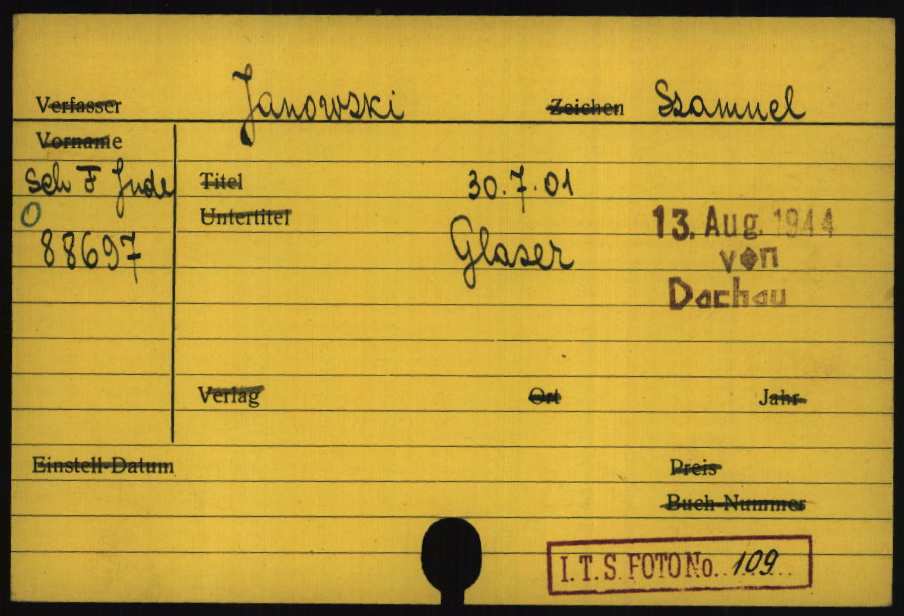 Verfasser Janowski Zeichen Szamuel
Vorname
Sch F Jude Titel 30.7.01
O Untertitel 13. Aug. 1944
88697 Glaser von
Dachau
Verlag Ort Jahr
Einstell-Datum Preis
Buch-Nummer
I.T.S. FOTO No. 109